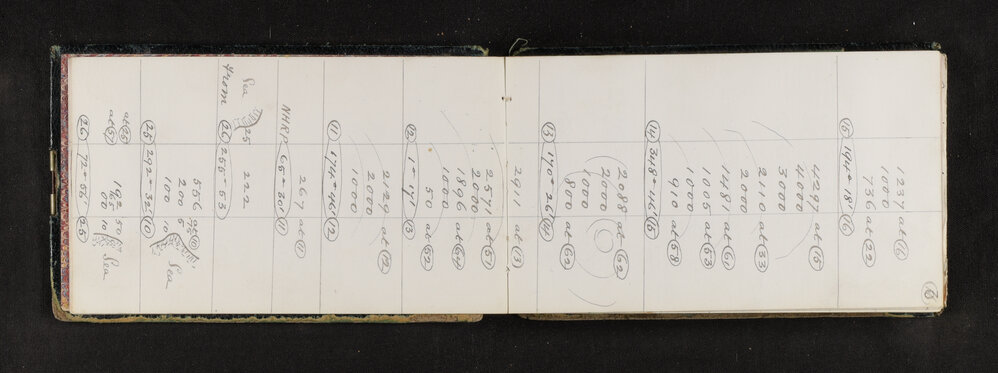 1237 at 16
1100
736 at 22
15 194° 18' 16
4297 at 15
4000
3000
2110 at 33
2000
1481 at 61
1005 at 53
1000
910 at 58
14 348° 46' 15
2088 at 62
2000
1000
800 at 62
13 170° 26' 14
2911 at 13
2571 at 57
2000
1896 at 64
1000
50 at 52
12 1° 47' 13
2129 at 12
2000
1000
11 174° 46' 12
267 at 11
NHRP 65° 30' 11
Sea 25 222
From 26 255° 53'
556
200 6 Sea
100 10
25 292° 32' 10
at 25 192 50 Sea
at 57 100 10
26 72° 55' 25